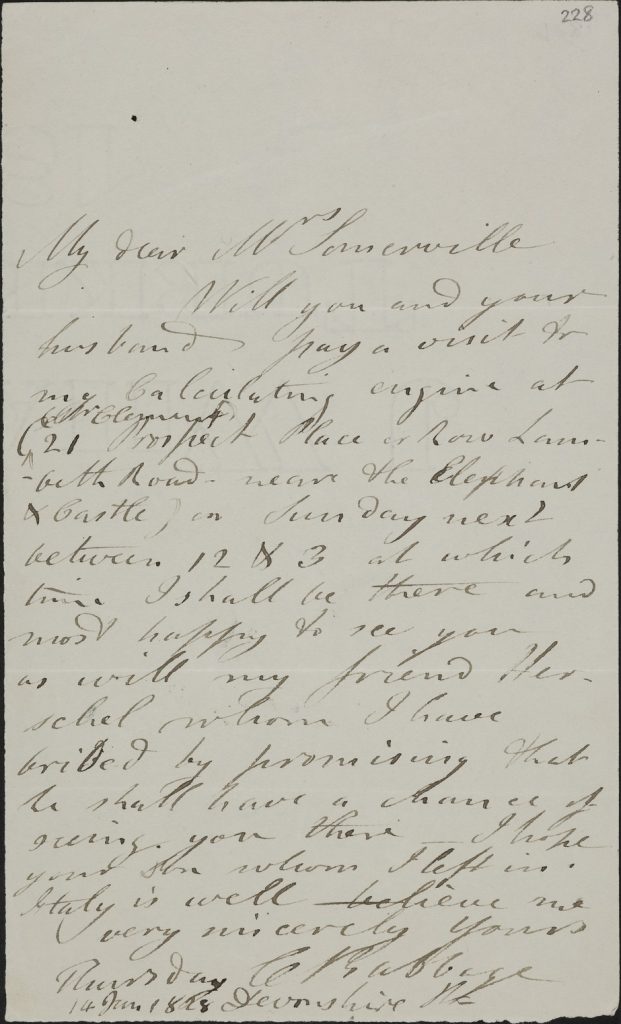 228
My dear Mrs Somerville
Will you and your
husband pay a visit to
my Calculating engine at
Mr Clements
(21 Prospect Place or Row Lam-
-beth Road - near the Elephant
& Castle) on Sunday next
between 12 & 3 at which
time I shall be there and
most happy to see you
as will my friend Her-
schel whom I have
bribed by promising that
he shall have a chance of
seeing you there _ I hope
your son whom I left in
Italy is well believe me
very sincerely Yours
C Babbage
Thursday
14 Jan 1828 Devonshire St